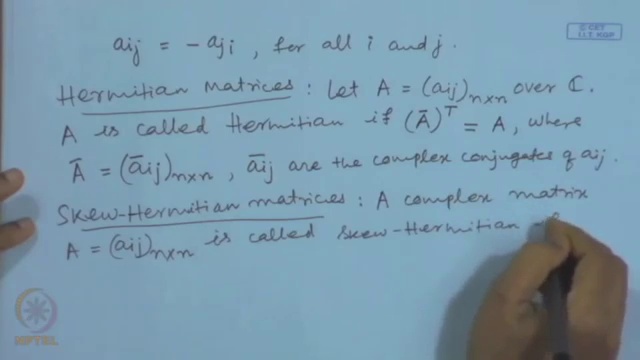 aij = - aji , for all i and j.
© CET
I.I.T. KGP
Hermitian Matrices : Let A = (aij)n×n over ℂ.
A is called Hermitian if (Ā)ᵀ = A, where
Ā = (āij)n×n , āij are the complex conjugates of aij.
Skew-Hermitian matrices : A complex matrix
A = (aij)n×n is called skew-Hermitian
NPTEL